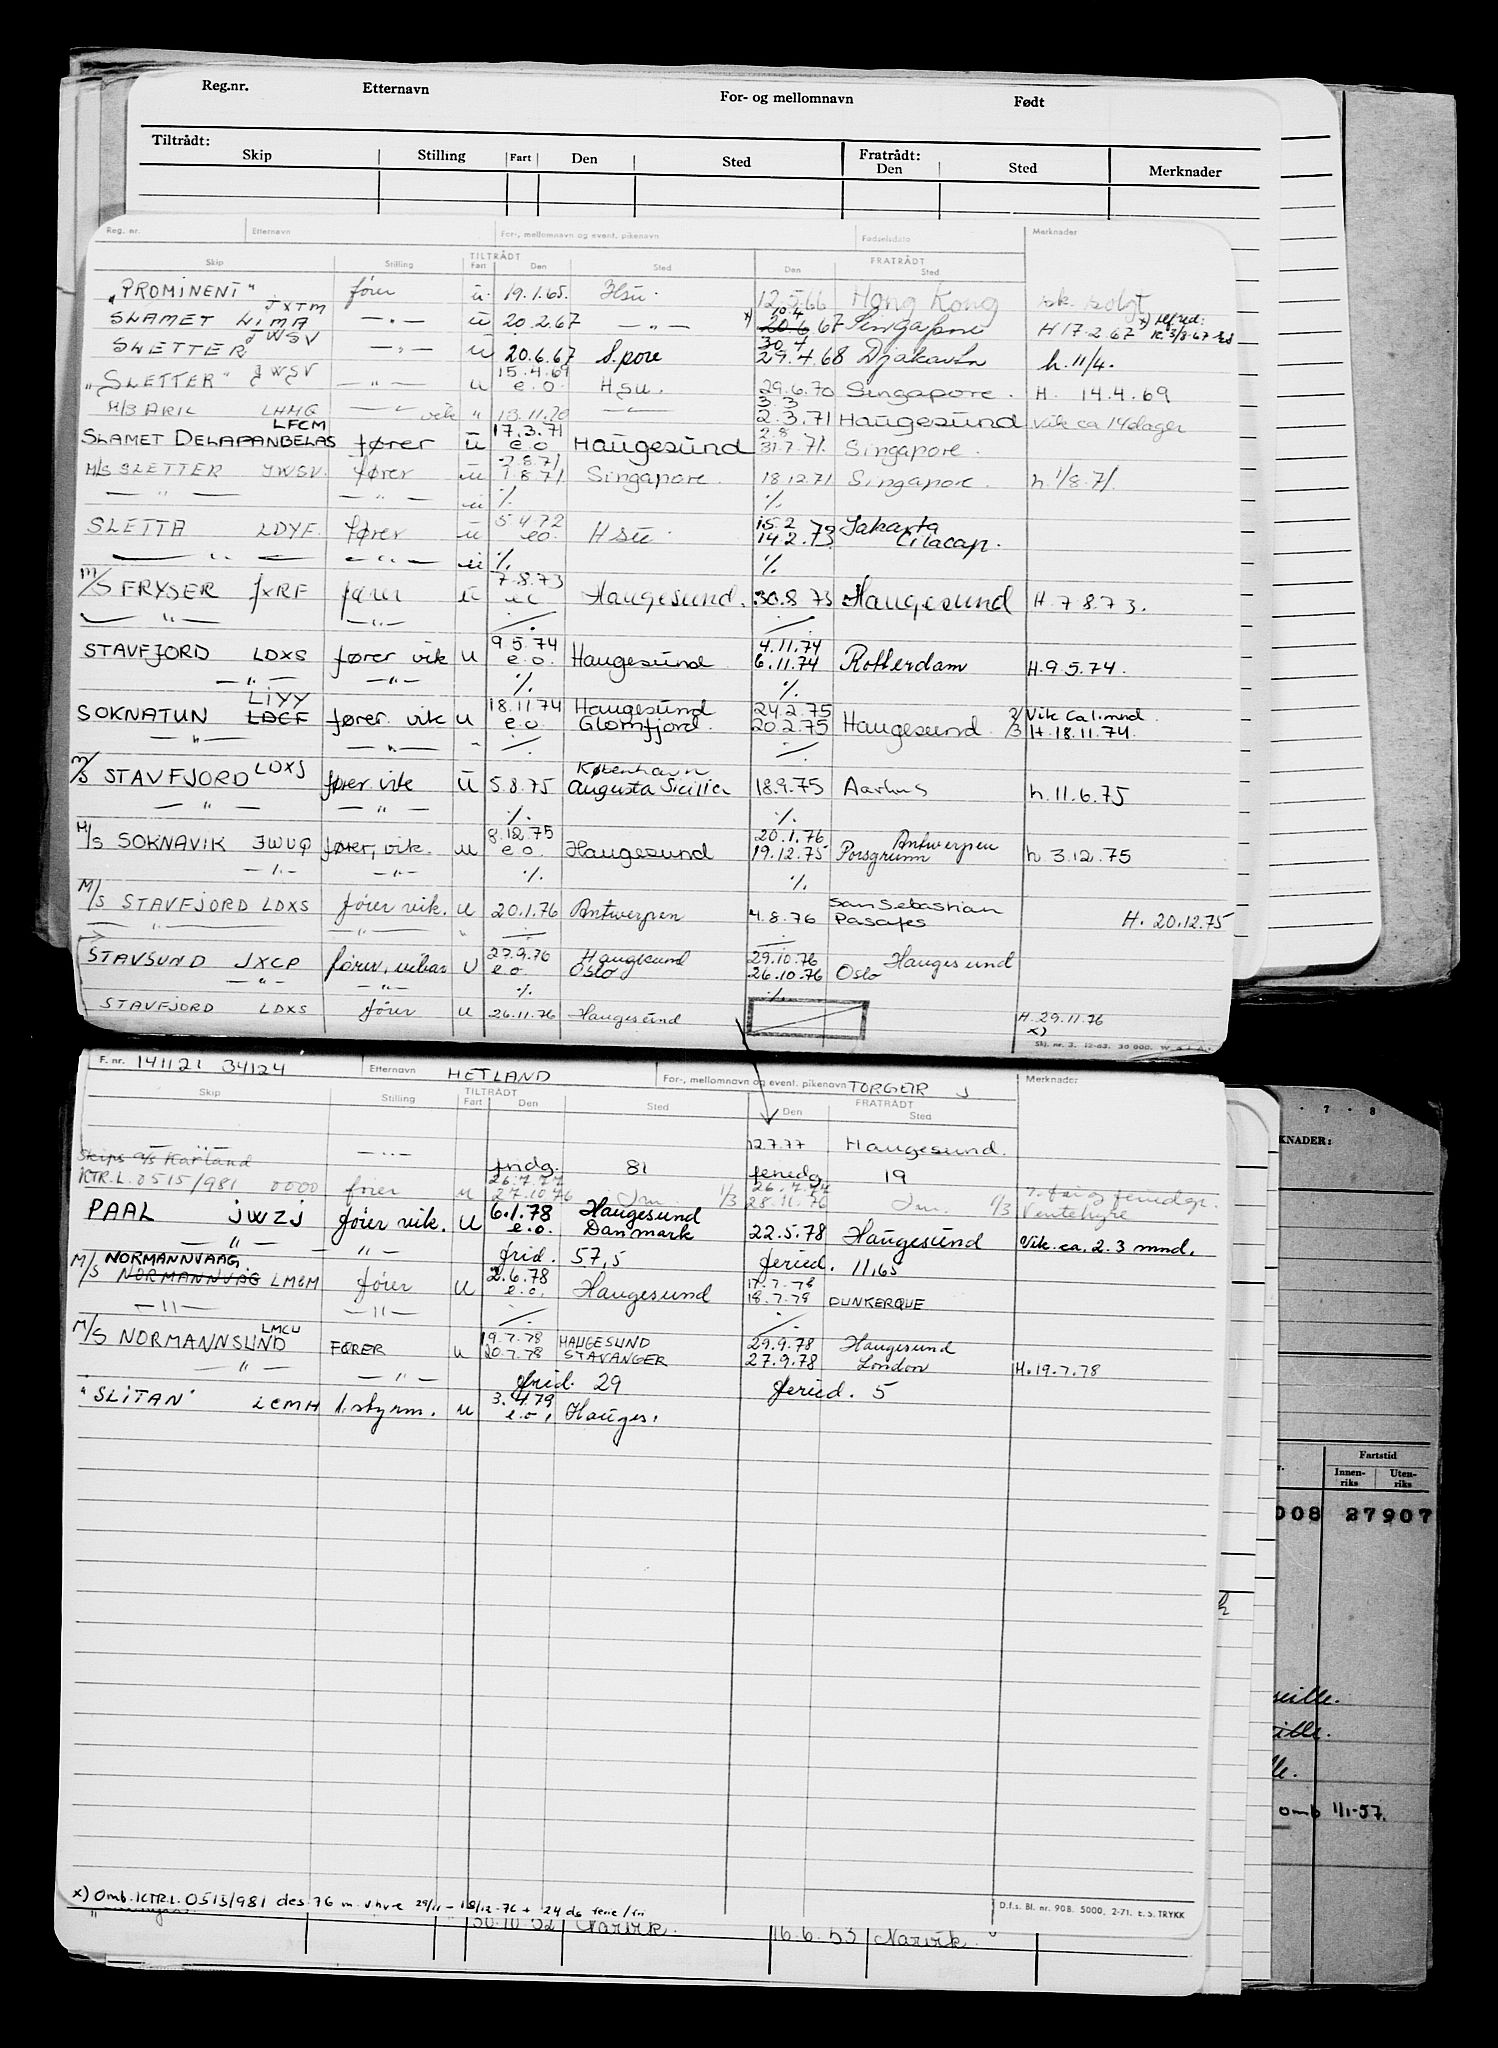 Reg.nr. Etternavn For- og mellomnavn Født
Tiltrådt: Fratrådt:
Skip Stilling Fart Den Sted Den Sted Merknader
Reg. nr. Etternavn For-, mellomnavn og event. pikenavn Fødselsdato Merknader
TILTRÅDT FRATRÅDT
Skip Stilling Fart Den Sted Den Sted
"PROMINENT" fører u. 19.1.65. Hsu. 12.5.66 Hong Kong sk. solgt
JXTM 10.4
SLAMET LIMA —"— u 20.2.67 —"— x) 20.6.67 Singapore H 17.2.67 x)
JWSV 30.4
SLETTER —"— u 20.6.67 S.pore 29.4.68 Djakarta h. 11/4.
15.4.69
"SLETTER" JWSV —"— u e.o. Hsu. 29.6.70 Singapore. H. 14.4.69
3.3
M/S ARIL LHMG —"— vik " 13.11.70 —"— 2.3.71 Haugesund Vik ca 14 dager
LFCM 17.3.71 2.8
SLAMET DELAPANBELAS fører u e.o. Haugesund 31.7.71. Singapore.
2.8.71
M/S SLETTER JWSV. fører u 1.8.71 Singapore. 18.12.71 Singapore. h. 1/8.71.
—"— —"— u ·/. ·/.
5.4.72 15.2 Jakarta
SLETTA LDYF. fører u eo. Hsu. 14.2.73 Cilacap.
—"— —"— u ·/. ·/.
7.8.73
M/S FRYSER JXRF fører u Haugesund. 30.8.73 Haugesund H. 7.8.73.
—"— —"— ·/. ·/.
9.5.74 4.11.74
STAVFJORD LDXS fører vik u e.o. Haugesund 6.11.74 Rotterdam H.9.5.74.
—"— —"— ·/. ·/.
LIYY 18.11.74 Haugesund 24.2.75 Vik Ca 1. mnd.
SOKNATUN LDCF fører vik u e.o. Glomfjord. 20.2.75 Haugesund 2/3 H. 18.11.74.
—"— —"— " ·/. ·/.
LDXS København
M/S STAVFJORD fører vik u 5.8.75 Augusta Sicilia 18.9.75 Aarhus h. 11.6.75
—"— —"— ·/. ·/.
8.12.75 20.1.76 Antwerpen
M/S SOKNAVIK JWUQ fører, vik. u e.o. Haugesund 19.12.75 Porsgrunn h 3.12.75
—"— —"— ·/. ·/.
San Sebastian
M/S STAVFJORD LDXS fører vik. u 20.1.76 Antwerpen 4.8.76 Pasajes H. 20.12.75
—"— —"— " ·/. ·/.
27.9.76 Haugesund 29.10.76 Haugesund
STAVSUND JXCP fører, vikar u e.o. Oslo 26.10.76 Oslo
—"— —"— ·/. ·/.
STAVFJORD LDXS fører u 26.11.76 Haugesund H. 29.11.76
x)
Skj. nr. 3. 12-63. 30 000.
F. nr. 141121 34124 Etternavn HETLAND For-, mellomnavn og event. pikenavn TORGEIR J Merknader
TILTRÅDT FRATRÅDT
Skip Stilling Fart Den Sted Den Sted
—"— —"— 12.7.77 Haugesund.
Skips a/s Karland fridg. 81 feriedg. 19
26.7.77 26.7.77
KTR.L. 0515/981 0000 fører u 27.10.76 1/3 28.11.76 1/3 Ventehyre
PAAL JWZJ fører vik. u 6.1.78 Haugesund
e.o. Danmark 22.5.78 Haugesund Vik. ca. 2.3 mnd.
—"— —"— frid. 57,5 feried. 11,65
NORMANNVAAG 2.6.78 17.7.78
M/S NORMANNVAG LMCM fører u e.o. Haugesund 18.7.78 DUNKERQUE
—"— —"— ·/. ·/.
LMCU 19.7.78 HAUGESUND 29.9.78 Haugesund
M/S NORMANNSUND FØRER u 20.7.78 STAVANGER 27.9.78 London H. 19.7.78
—"— —"— frid. 29 feried. 5
3.4.79
"SLITAN" LCMH 1.styrm. u e.o. Hauges.
x) Omb. KTR.L. 0515/981 des. 76 m. v.hyre 29/11 – 18/12-76 + 24 dg ferie/fri
D.f.s. Bl. nr. 908. 5000, 2-71. E. S. TRYKK
30.10.52 Narvik. 16.6.53 Narvik.
· 7 · 8
KNADER:
Fartstid
Innen-riks Uten-riks
008 27907
omb 1/1-57.